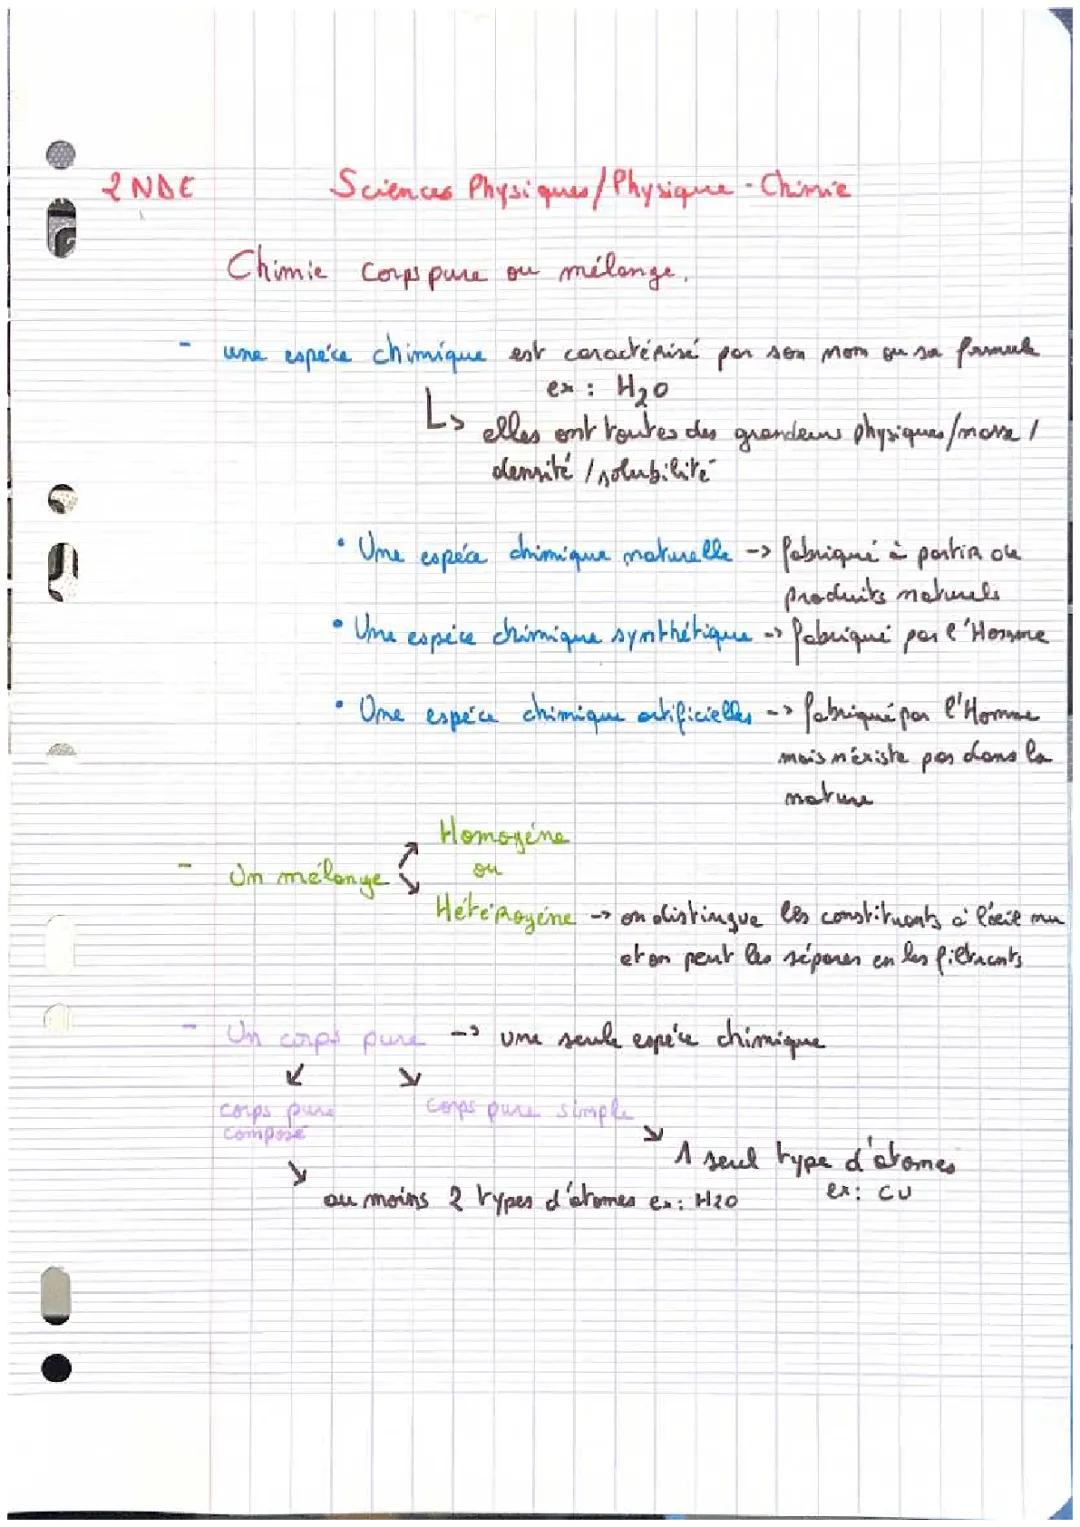 2NDE Sciences Physiques/Physique-Chimie
Chimie Corps pure ou mélange.
- une espèce chimique est caractérisé par son nom ou sa formule
ex : H2O
↳ elles ont toutes des grandeurs physiques/masse/
densité /solubilité
• Une espèce chimique naturelle -> fabriqué à partir de
produits naturels
• Une espèce chimique synthétique -> fabriqué par l'Homme
• Une espèce chimique artificielles -> fabriqué par l'Homme
mais n'existe pas dans la
nature
Homogène
- Un mélange ou
Hétérogène -> on distingue les constituants à l'œil nu
et on peut les séparer en les filtrants
- Un corps pure -> une seule espèce chimique
corps pure corps pure simple
composé
1 seul type d'atomes
au moins 2 types d'atomes ex: H2O ex: CU